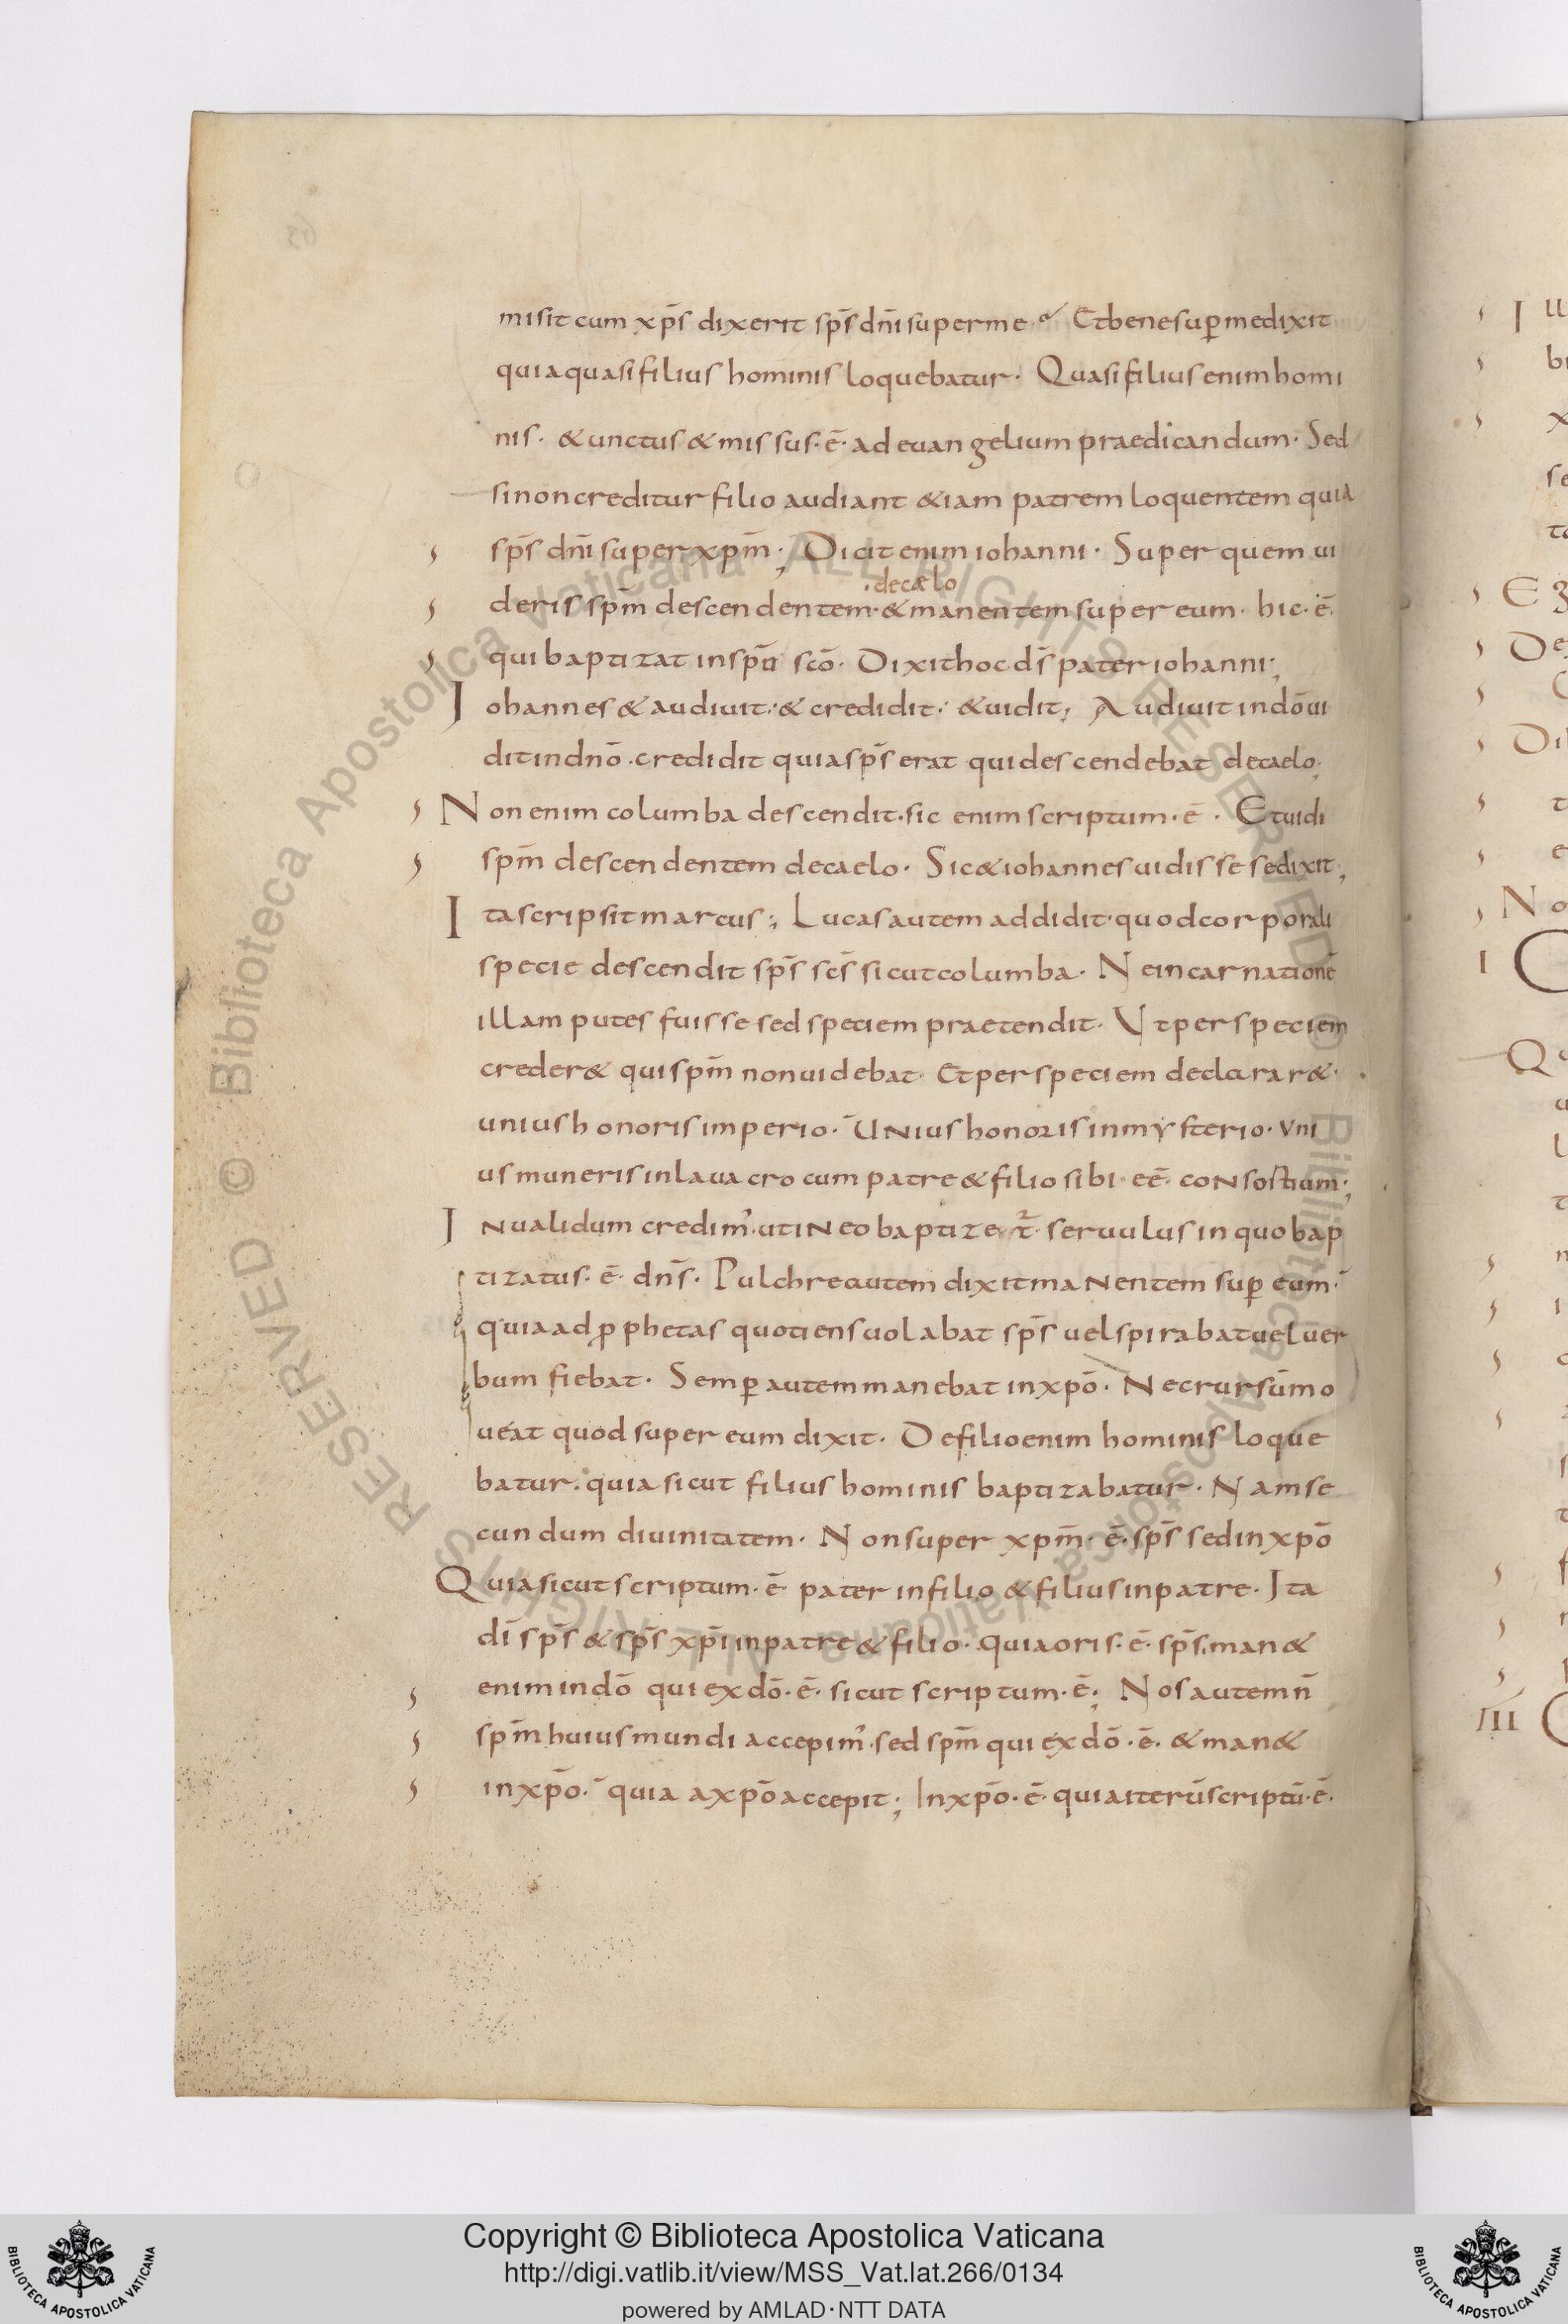 misit cum xp̄s dixerit sp̄s dn̄i super me· Et bene sup̱ me dixit
quia quasi filius hominis loquebatur· Quasi filius enim homi
nis· & unctus & missus·ē· ad euangelium praedicandum· Sed
si non creditur filio audiant &iam patrem loquentem quia
sp̄s dn̄i super xpm̄; Dicit enim iohanni· Super quem ui
·de cælo
deris spm̄ descendentem·& manentem super eum· hic·ē·
qui baptizat in spū scō· Dixit hoc ds̄ pater iohanni;
Iohannes & audiuit·& credidit· & uidit; Audiuit in dō ui
dit in dnō·credidit quia sp̄s erat qui descendebat de caelo·
Non enim columba descendit·sic enim scriptum·ē· Et uidi
spm̄ descendentem de caelo· Sic & iohannes uidisse se dixit;
Ita scripsit marcus; Lucas autem addidit·quod corporali
specie descendit sp̄s scs̄ sicut columba· Ne incarnationē
illam putes fuisse sed speciem praetendit· Ut per speciem
creder& qui spm̄ non uidebat· Et per speciem declarar&·
unius honoris imperio· Unius honoris in mysterio· Uni
us muneris in lauacro cum patre & filio sibi·eē· consortium;
Inualidum credim᾽·ut in eo baptizet᷑· seruulus in quo bap
tizatus·ē· dn̄s· Pulchre autem dixit manentem sup̱ eum·
quia ad p̱phetas quotiens uolabat sp̄s uel spirabat uel uer
bum fiebat· Semp̱ autem manebat in xpō· Nec rursūm o
ueat quod super eum dixit· De filio enim hominis loque
batur·quia sicut filius hominis baptizabatur· Nam se
cundum diuinitatem· Non super xpm̄·ē·sp̄s sed in xpō
Quia sicut scriptum·ē· pater in filio & filius in patre· Ita
dī sp̄s & sp̄s xpī in patre & filio· quia oris·ē· sp̄s·man&
enim in dō qui ex dō·ē· sicut scriptum·ē; Nos autem n̄
spm̄ huius mundi accepim᾽·sed spm̄ qui ex dō·ē· & man&
in xpō· quia a xpō accepit; In xpō·ē· quia iterū scriptū·ē·
Copyright © Biblioteca Apostolica Vaticana
http://digi.vatlib.it/view/MSS_Vat.lat.266/0134
powered by AMLAD·NTT DATA
BIBLIOTECA APOSTOLICA VATICANA
BIBLIOTECA APOSTOLICA VATICANA